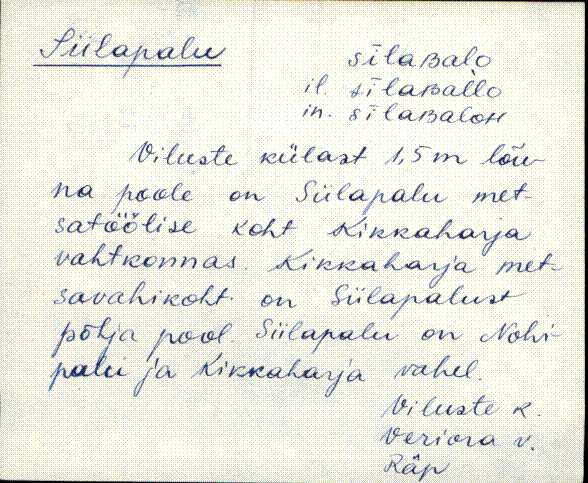 Siilapalu
sīlaʙalo
il. sīlaʙal̀lo
in. sīlaʙaloн
Viluste külast 1,5 m lõu-
na poole on Siilapalu met-
satöölise koht Kikkaharja
vahtkonnas. Kikkaharja met-
savahikoht on Siilapalust
põhja pool. Siilapalu on Nohi-
palu ja Kikkaharja vahel.
Viluste k.
Veriora v.
Räp